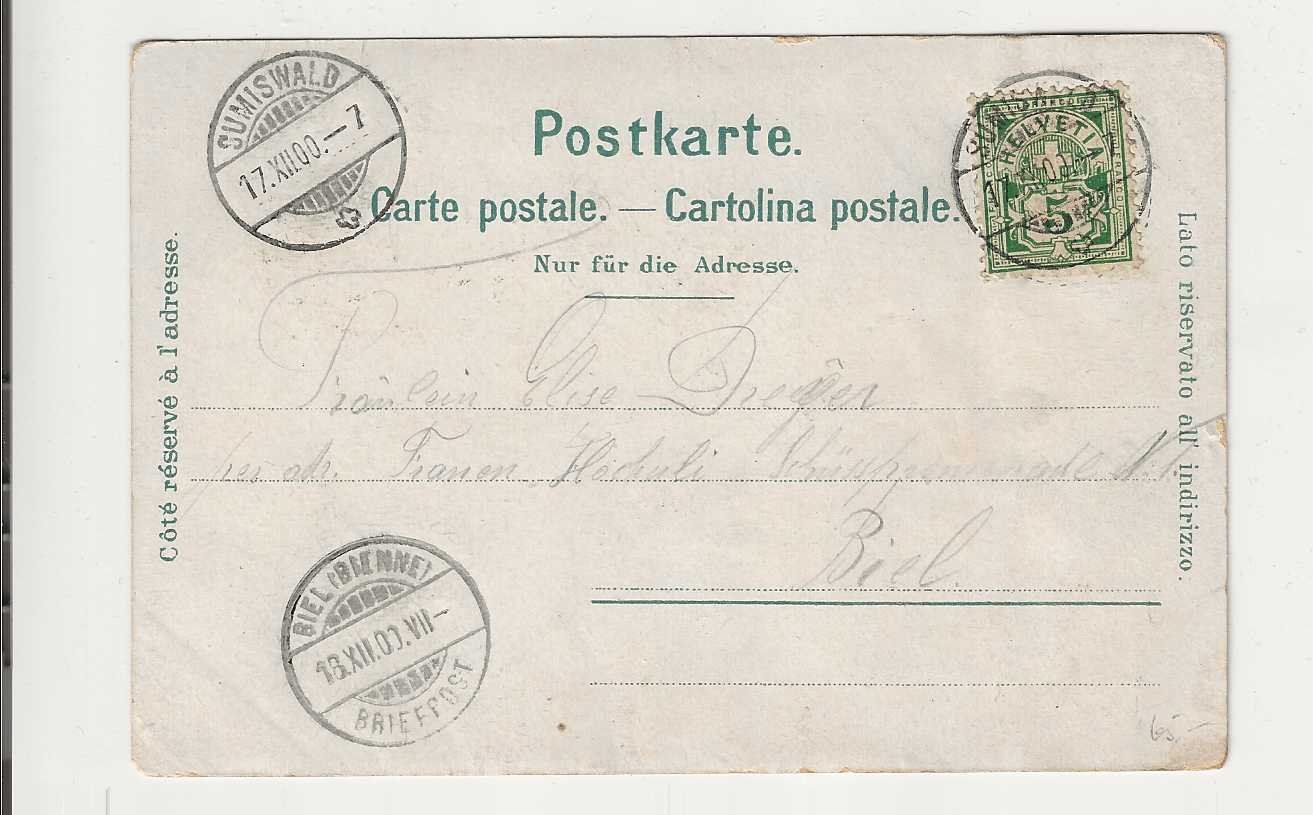 SUMISWALD
17.XII.00.–7
Postkarte.
Carte postale. — Cartolina postale.
Nur für die Adresse.
HELVETIA
5
Côté réservé à l'adresse.
Lato riservato all' indirizzo.
Fräulein Elise
per adr. Frauen Hochuli
Biel.
BIEL (BIENNE)
18.XII.00.VII–
BRIEFPOST
65.–